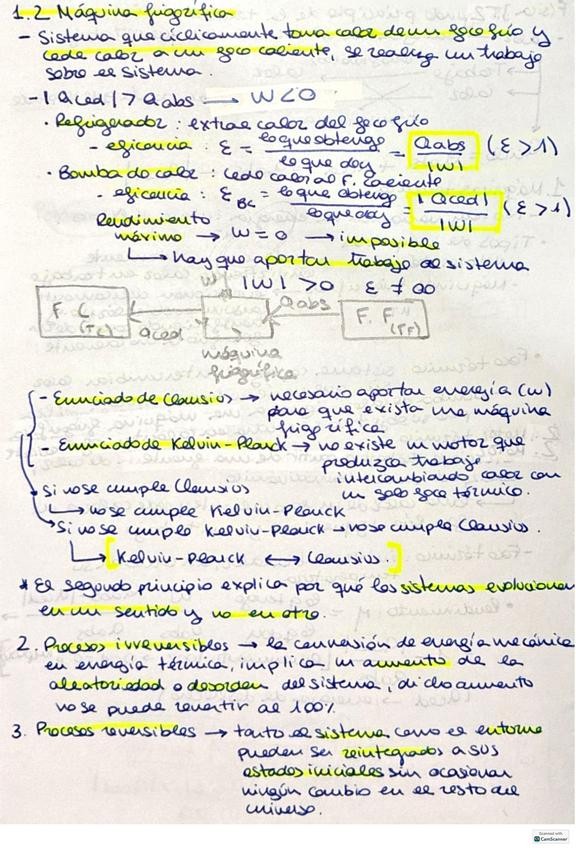 1.2 Máquina frigorífica
- Sistema que cíclicamente toma calor de un foco frío y
cede calor a un foco caliente, se realiza un trabajo
sobre el sistema.
- |Qced| > Qabs → W<0
· Refrigerador: extrae calor del foco frío
- eficiencia: ε = lo que obtengo / lo que doy = Qabs / |W| (ε>1)
· Bomba de calor: cede calor al F. caliente
- eficiencia: εBC = lo que obtengo / lo que doy |Qced| / |W| (ε>1)
Rendimiento
máximo → W=0 → imposible
↳ hay que aportar trabajo al sistema
|W| >0 ε ≠ ∞
W
F. C. (Tc) Qced Qabs F. F. (TF)
máquina
frigorífica
- Enunciado de Clausius → necesario aportar energía (W)
para que exista una máquina
frigorífica
- Enunciado de Kelvin-Planck → no existe un motor que
produzca trabajo
intercambiando calor con
un solo foco térmico.
Si no se cumple Clausius
↳ no se cumple Kelvin-Planck
Si no se cumple Kelvin-Planck → no se cumple Clausius.
↳ [Kelvin-Planck ↔ Clausius.]
* El segundo principio explica por qué los sistemas evolucionan
en un sentido y no en otro.
2. Procesos irreversibles → la conversión de energía mecánica
en energía térmica, implica un aumento de la
aleatoriedad o desorden del sistema, dicho aumento
no se puede revertir al 100%.
3. Procesos reversibles → tanto el sistema como el entorno
pueden ser reintegrados a sus
estados iniciales sin ocasionar
ningún cambio en el resto del
universo.
Scanned with
CamScanner